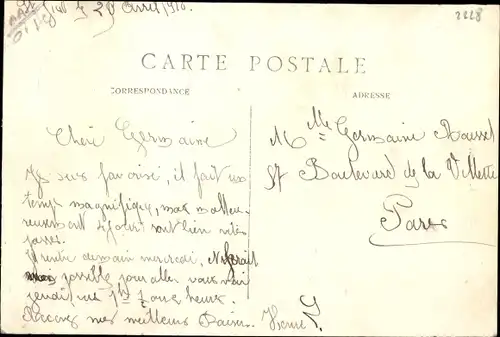 29 Avril 1910.
2228
CARTE POSTALE
CORRESPONDANCE
ADRESSE
Cheri Germaine
Je suis favorisé, il fait un
temps magnifique, mais malheu-
reusement 4 jours sont bien vite
passés.
Je rentre demain mercredi,
possible pour aller vous voir
jeudi, vers onze heures.
Recevez mes meilleurs Baisers. Henri
Mlle Germaine Roussel
57 Boulevard de la Villette
Paris